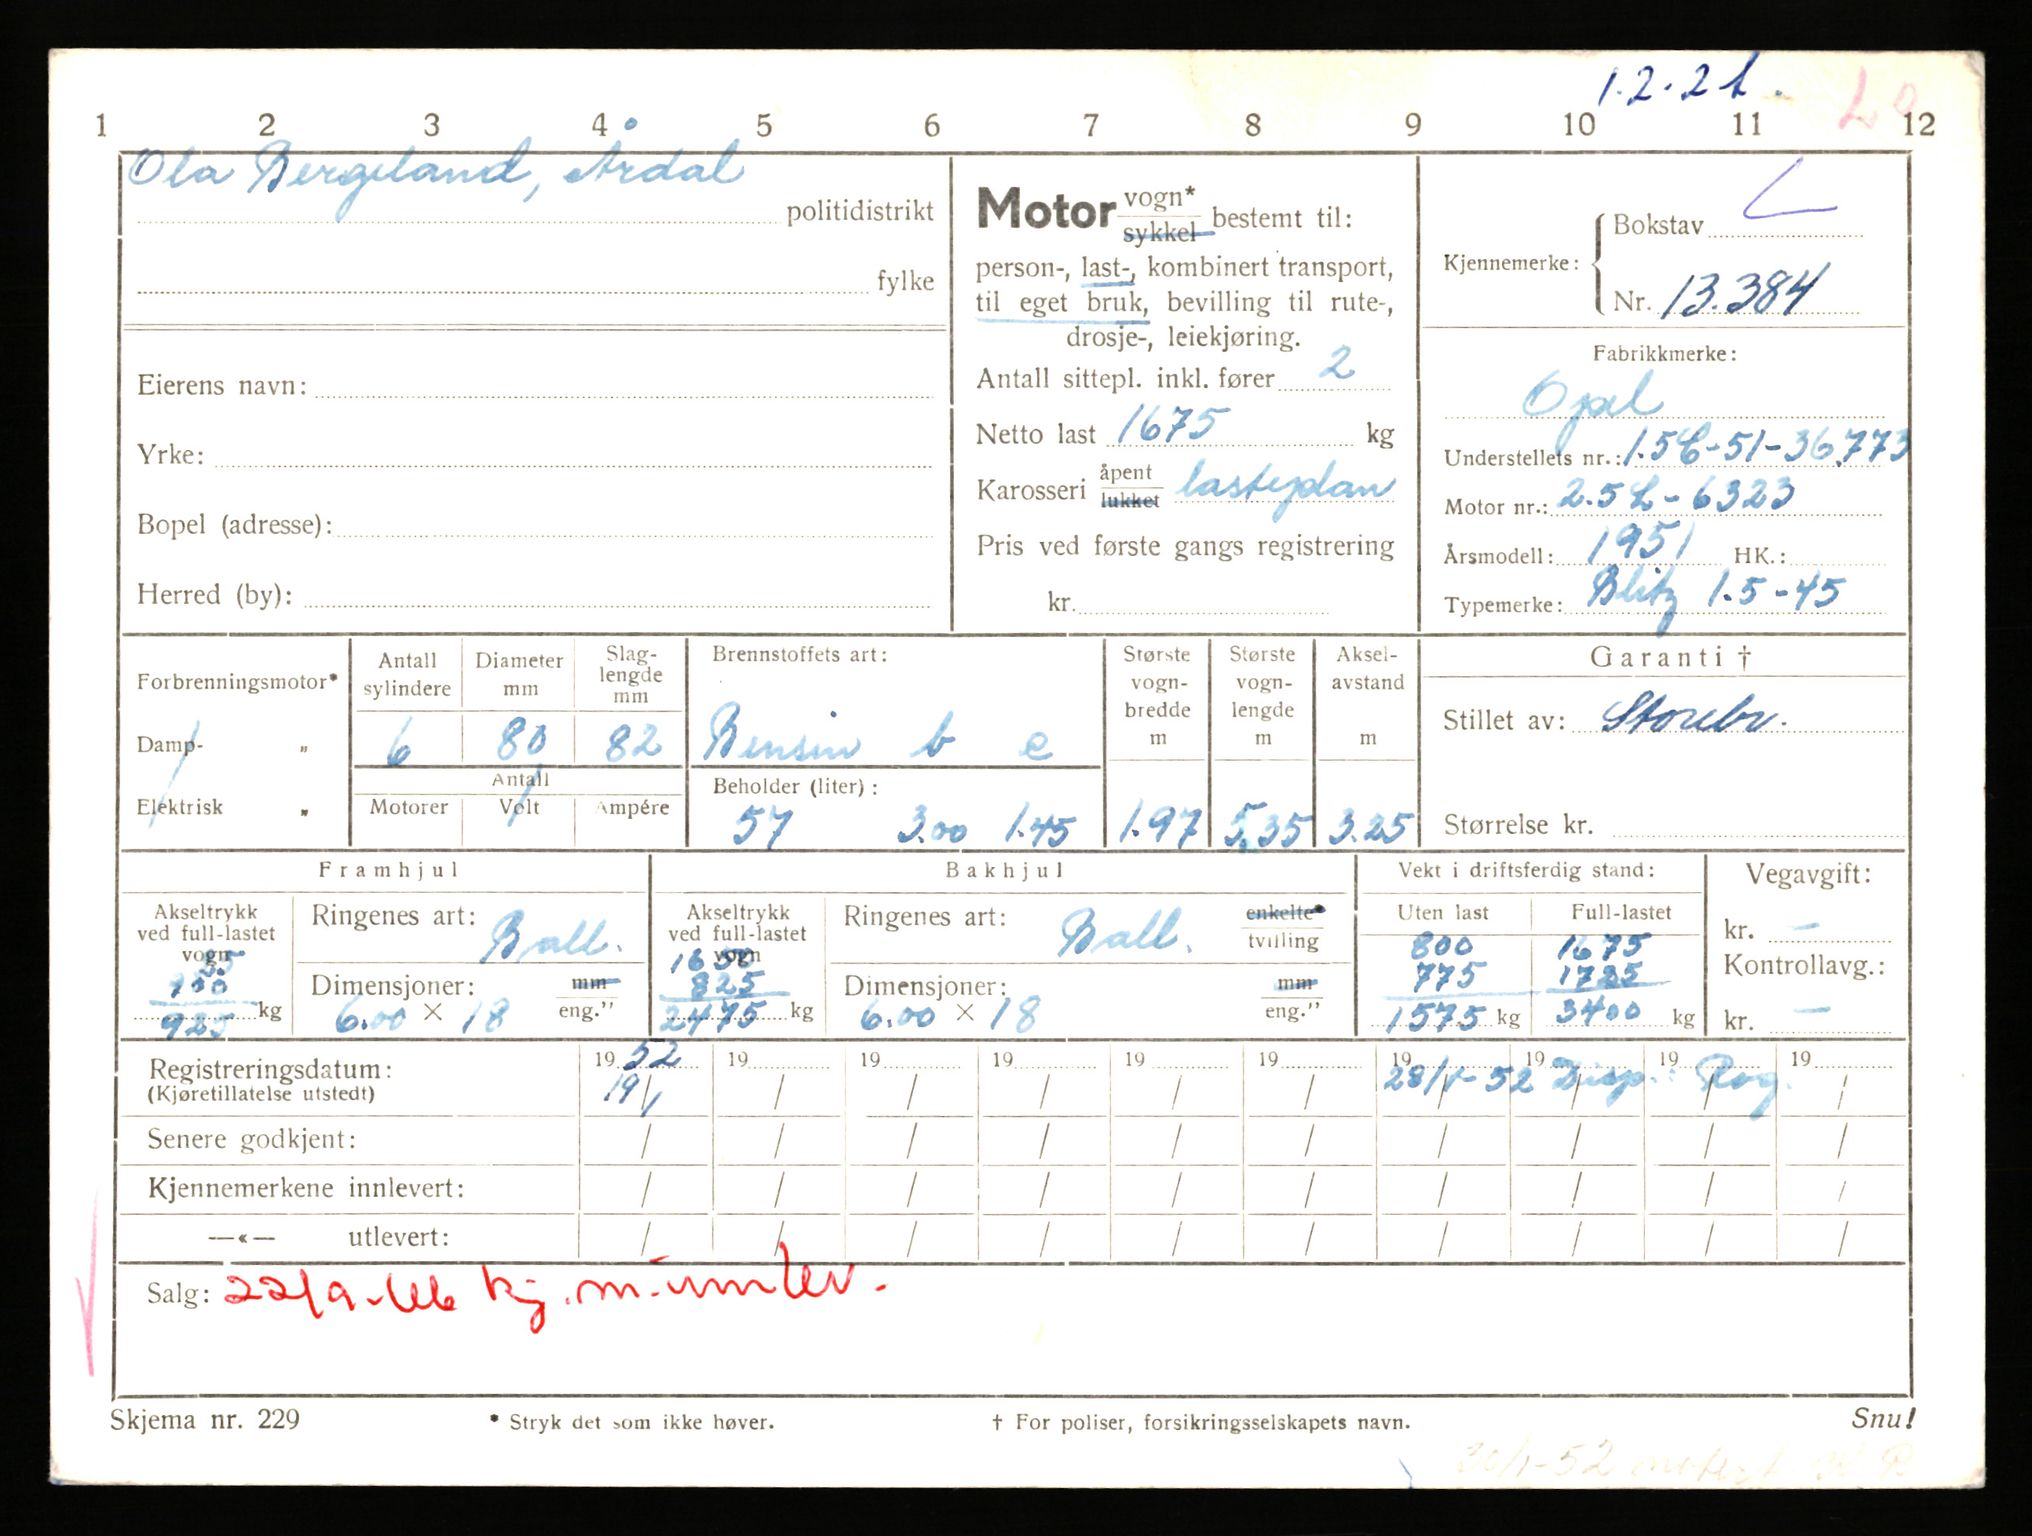 1.2.21.
1 2 3 4 5 6 7 8 9 10 11 12
Ola Bergeland, Årdal
politidistrikt
fylke
Eierens navn:
Yrke:
Bopel (adresse):
Herred (by):
Motor vogn* sykkel bestemt til:
person-, last-, kombinert transport,
til eget bruk, bevilling til rute-,
drosje-, leiekjøring.
Antall sittepl. inkl. fører 2
Netto last 1675 kg
Karosseri åpent lukket lasteplan
Pris ved første gangs registrering
kr.
Kjennemerke: Bokstav L
Nr. 13.384
Fabrikkmerke:
Opel
Understellets nr.: 1.5L-51-36773
Motor nr.: 2.5L-6323
Årsmodell: 1951 HK.:
Typemerke: Blitz 1.5-45
Forbrenningsmotor*
Damp- „
Elektrisk „
Antall sylindere 6
Diameter mm 80
Slaglengde mm 82
Antall
Motorer Volt Ampére
Brennstoffets art:
Bensin b e
Beholder (liter):
57 3.00 1.45
Største vognbredde m 1.97
Største vognlengde m 5.35
Akselavstand m 3.25
Garanti †
Stillet av: Storebr.
Størrelse kr.
Framhjul
Akseltrykk ved full-lastet vogn
925 kg
Ringenes art: Ball.
Dimensjoner: 6.00 × 18 mm eng."
Bakhjul
Akseltrykk ved full-lastet vogn
1650
825
2475 kg
Ringenes art: Ball. enkelte* tvilling
Dimensjoner: 6.00 × 18 mm eng."
Vekt i driftsferdig stand:
Uten last Full-lastet
800 1675
775 1725
1575 kg 3400 kg
Vegavgift:
kr. —
Kontrollavg.:
kr. —
Registreringsdatum: 19 52 19 19 19 19 19 19 19 19 19
(Kjøretillatelse utstedt) 19/1 28/1-52 Disp.: Rog.
Senere godkjent:
Kjennemerkene innlevert:
—«— utlevert:
Salg: 22/9-66 kj.m. innlev.
Skjema nr. 229 * Stryk det som ikke høver. † For poliser, forsikringsselskapets navn. Snu!
30/1-52